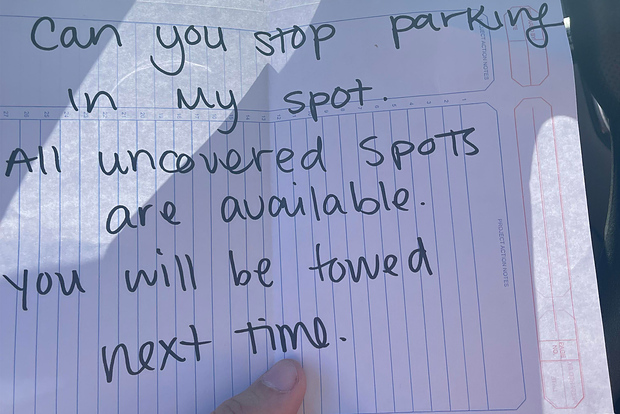 Can you stop parking
in My spot.
All uncovered spots
are available.
you will be towed
next time.
PROJECT ACTION NOTES